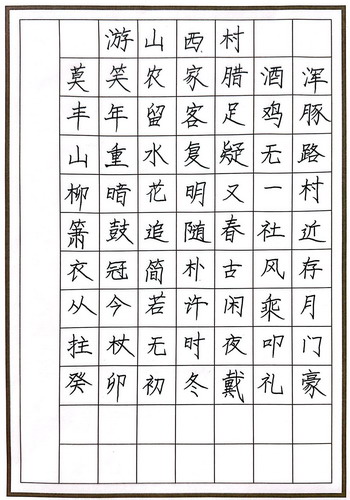 游山西村
莫笑农家腊酒浑
丰年留客足鸡豚
山重水复疑无路
柳暗花明又一村
箫鼓追随春社近
衣冠简朴古风存
从今若许闲乘月
拄杖无时夜叩门
癸卯初冬戴礼豪